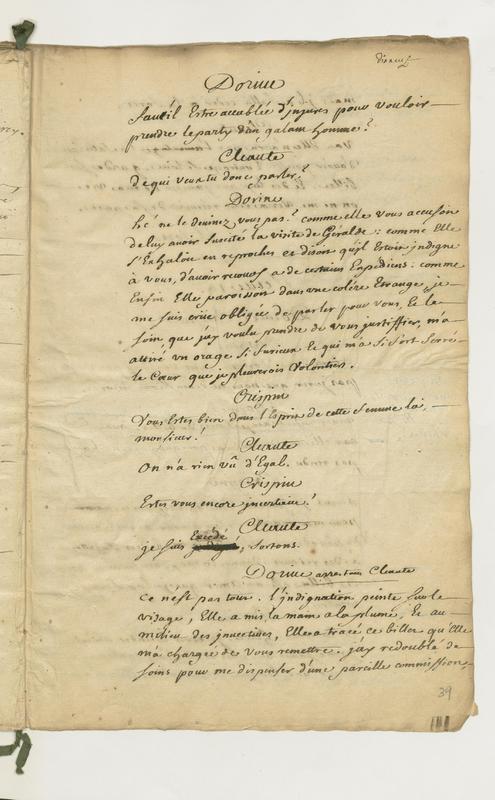 Dorine
faut-il Estre accablée d'injures pour vouloir
prendre le party d'un galant homme?
Cleante
de qui veux tu donc parler?
Dorine
hé ne le devinez vous pas? comme elle vous accusoit
de luy avoir suscité la visite de Geralde: comme Elle
s'Exhaloit en reproches et disoit qu'il Estoit indigne
à vous, d'avoir recours a de certains Expédiens: comme
Enfin Elle paroissoit dans une colére Etrange, je
me suis crüe obligée de parler pour vous, Et le
soin que j'ay voulu prendre de vous justiffier, m'a
attiré un orage si furieux Et qui m'a si fort serré
le Cœur que je pleurerois Volontiers.
Crispin
Vous Estes bien dans l'Esprit de cette femme là,
monsieur!
Cleante
On n'a rien vû d'Egal.
Crispin
Estes vous encore incertain?
Cleante
Excédé
je suis, sortons.
Dorine arrestant Cleante
Ce n'est pas tout. l'indignation peinte sur le
visage, Elle a mis la main a la plume, Et au
milieu des invectives, Elle a tracé ce billet qu'Elle
m'a chargée de vous remettre. j'ay redoublé de
soins pour me dispenser d'une pareille commission,
39